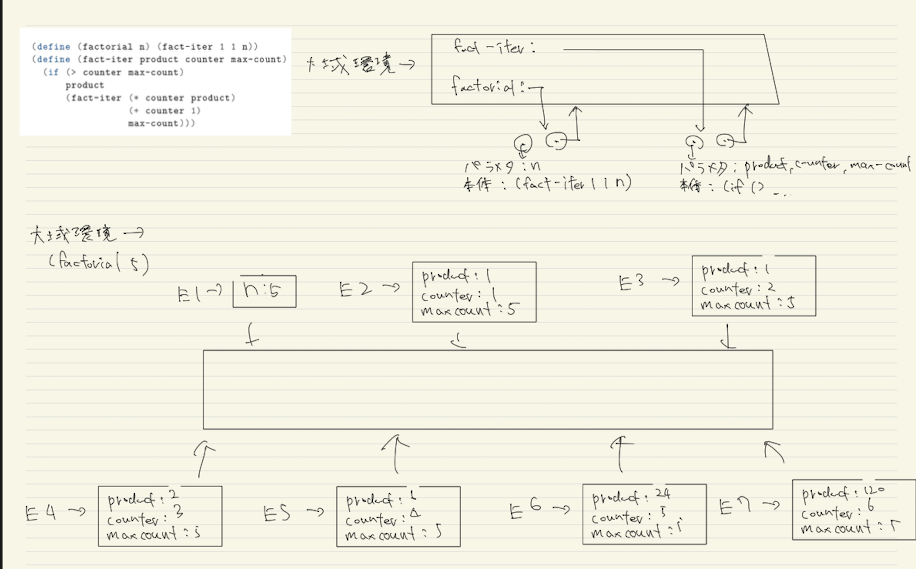 (define (factorial n) (fact-iter 1 1 n))
(define (fact-iter product counter max-count)
(if (> counter max-count)
product
(fact-iter (* counter product)
(+ counter 1)
max-count)))
大域環境→
fact-iter:
factorial:
パラメタ:n
本体:(fact-iter 1 1 n)
パラメタ:product, counter, max-count
本体:(if (> ...
大域環境→
(factorial 5)
E1→
n:5
E2→
product:1
counter:1
maxcount:5
E3→
product:1
counter:2
maxcount:5
E4→
product:2
counter:3
maxcount:5
E5→
product:6
counter:4
maxcount:5
E6→
product:24
counter:5
maxcount:5
E7→
product:120
counter:6
maxcount:5